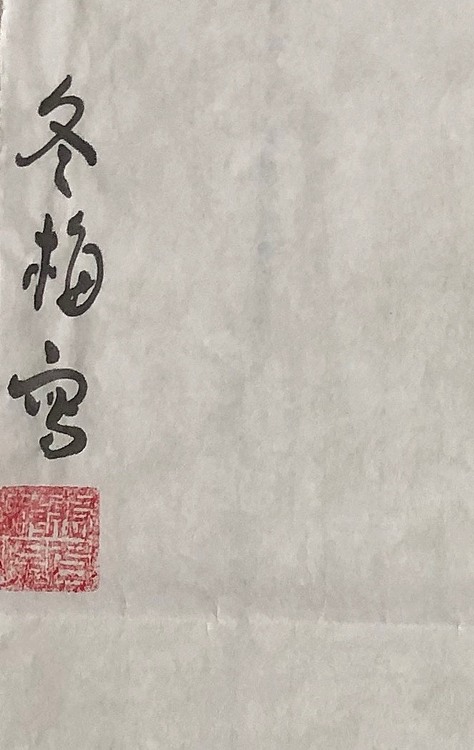 冬梅寫